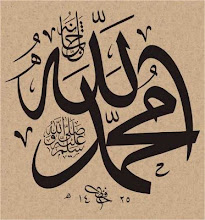 الله
محمد
صلى الله عليه وسلم
١٤ ٢٥ هـ